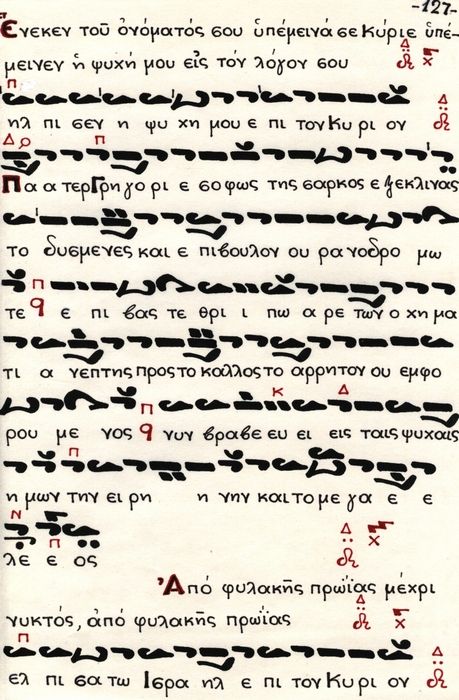 -127-
Ἕνεκεν τοῦ ὀνόματός σου ὑπέμεινά σε Κύριε ὑπέ-
μεινεν ἡ ψυχή μου εἰς τόν λόγον σου
ηλ πι σεν η ψυ χη μου ε πι τον Κυ ρι ον
Πα α τερ Γρη γο ρι ε σο φως της σαρκος ε ξεκλινας
το δυσμενες και ε πιβουλον ου ρανοδρο μω
τε q ε πι βας τε θρι ι πω α ρε των ο χη μα
τι α νεπτης προς το καλλος το αρρητον ου εμφο
ρου με νος q νυν βραβε ευ ει εις ταις ψυχαις
η μων την ει ρη η νην και το με γα ε ε
λε ε ος
Ἀπό φυλακῆς πρωΐας μέχρι
νυκτός, ἀπό φυλακῆς πρωΐας
ελ πι σα τω Ισρα ηλ ε πι τον Κυ ρι ον